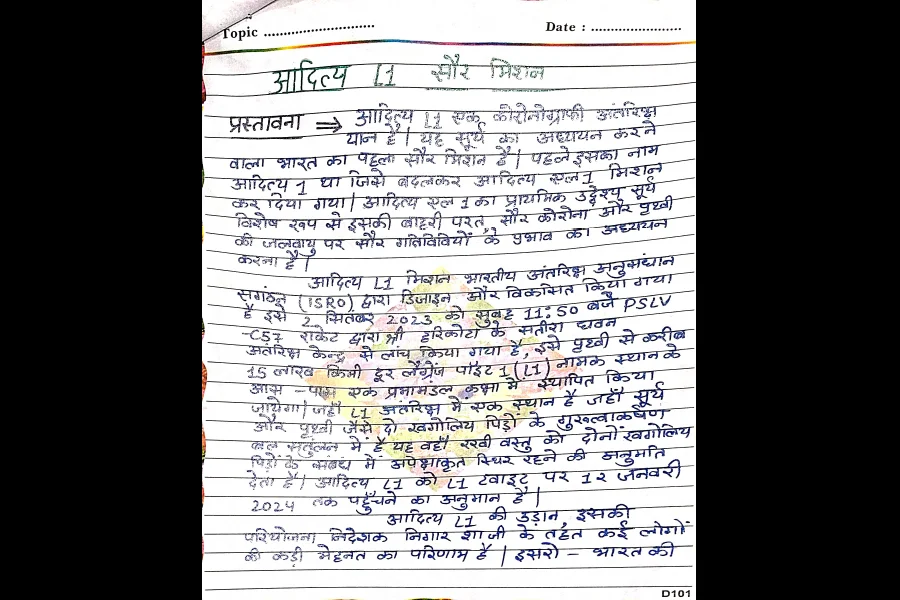 Topic ............................ Date : ........................
आदित्य L1 सौर मिशन
प्रस्तावना ⇒ आदित्य L1 एक कोरोनोग्राफी अंतरिक्ष
यान है | यह सूर्य का अध्ययन करने
वाला भारत का पहला सौर मिशन है | पहले इसका नाम
आदित्य 1 था जिसे बदलकर आदित्य एल 1 मिशन
कर दिया गया | आदित्य एल 1 का प्राथमिक उद्देश्य सूर्य
विशेष रूप से इसकी बाहरी परत, सौर कोरोना और पृथ्वी
की जलवायु पर सौर गतिविधियों के प्रभाव का अध्ययन
करना है |
आदित्य L1 मिशन भारतीय अंतरिक्ष अनुसंधान
संगठन (ISRO) द्वारा डिजाइन और विकसित किया गया
है इसे 2 सितंबर 2023 को सुबह 11:50 बजे PSLV
-C57 राकेट द्वारा श्री हरिकोटा के सतीश धवन
अंतरिक्ष केन्द्र से लांच किया गया है, इसे पृथ्वी से करीब
15 लाख किमी दूर लैग्रेंज पॉइंट 1 (L1) नामक स्थान के
आस - पास एक प्रभामंडल कक्षा में स्थापित किया
जायेगा | जहाँ L1 अंतरिक्ष में एक स्थान है जहाँ सूर्य
और पृथ्वी जैसे दो खगोलिय पिंडों के गुरूत्वाकर्षण
बल संतुलन में है यह वहाँ रखी वस्तु को दोनों खगोलिय
पिंडों के संबंध में अपेक्षाकृत स्थिर रहने की अनुमति
देता है | आदित्य L1 को L1 टवाइट पर 12 जनवरी
2024 तक पहुँचने का अनुमान है |
आदित्य L1 की उड़ान, इसकी
परियोजना निदेशक निगार शाजी के तहत कई लोगों
की कड़ी मेहनत का परिणाम है | इसरो - भारत की
P101